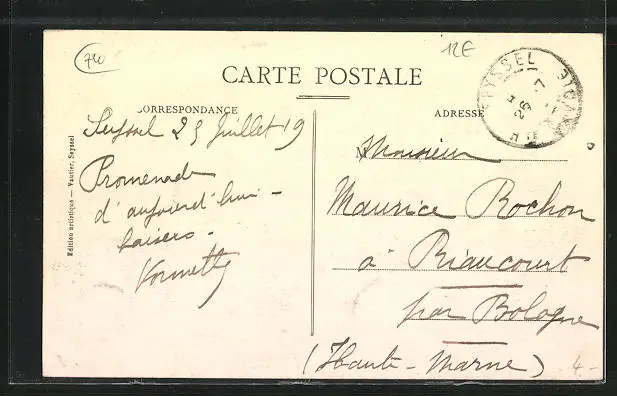 740
12E
CARTE POSTALE
CORRESPONDANCE
ADRESSE
SEYSSEL
26 -7
Seyssel 25 Juillet 19
Promenade
d'aujourd'hui -
baisers -
Monsieur
Maurice Rochon
à Riaucourt
par Bologne
(Haute-Marne)
4-
Edition artistique — Vautier, Seyssel